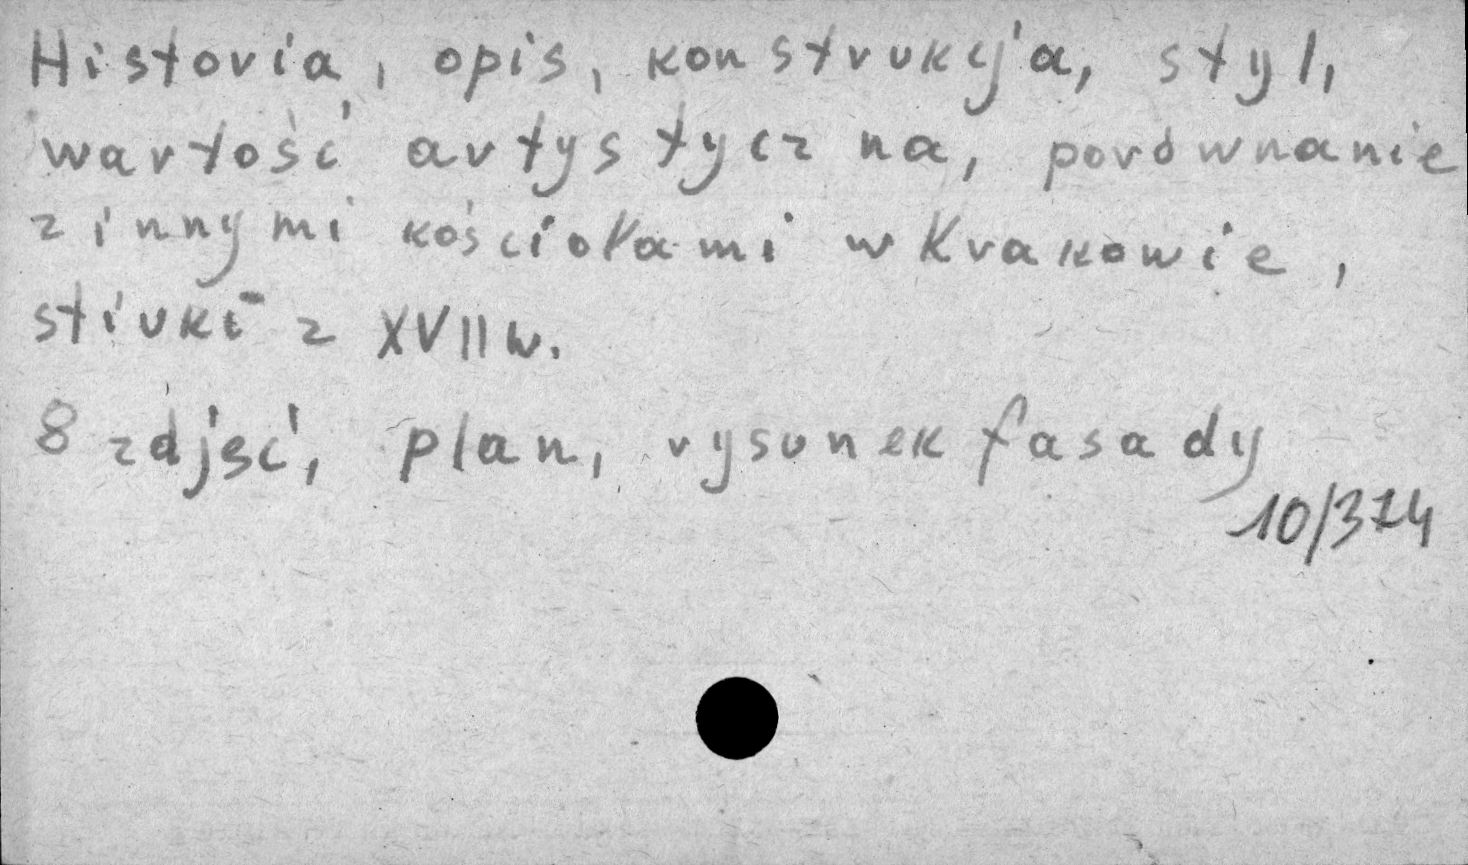 Historia, opis, konstrukcja, styl,
wartość artystyczna, porównanie
z innymi kościołami w Krakowie,
stiuki z XVII w.
8 zdjęć, plan, rysunek fasady
10/374